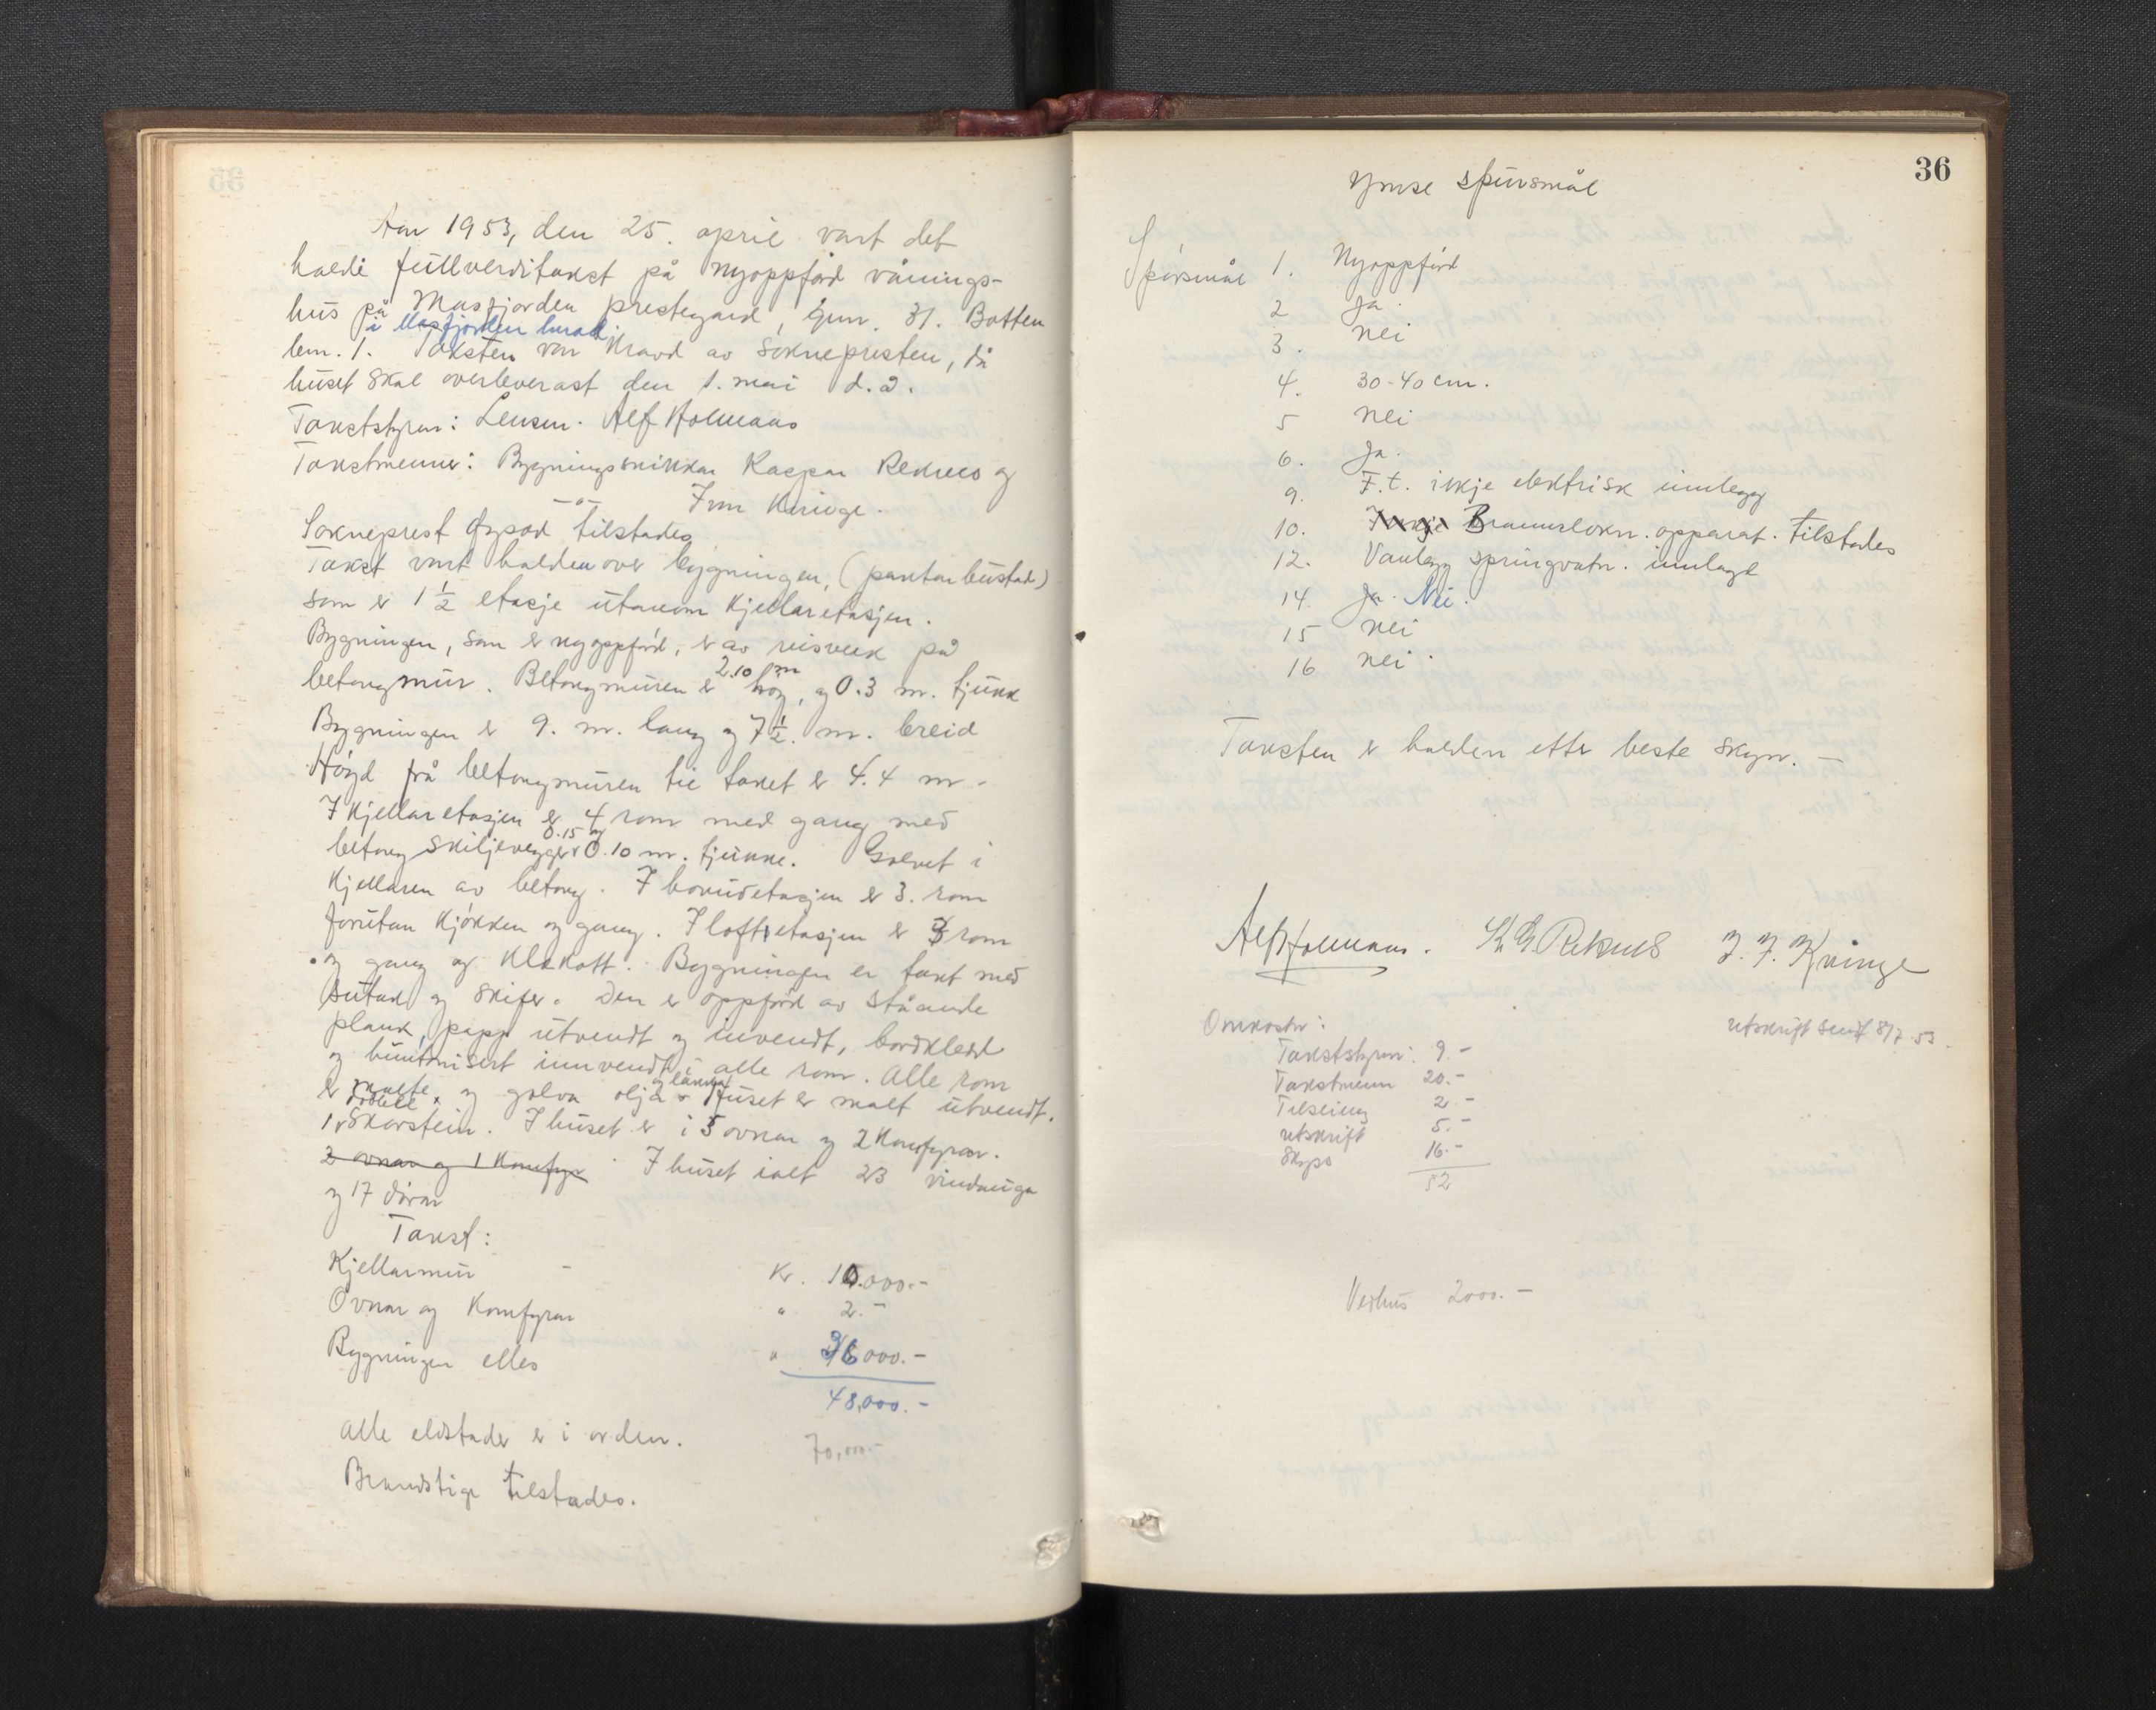 Aar 1953, den 25. april vart det
haldi fullverditakst på nyoppførd vånings-
hus på Masfjorden prestegard, Gnr. 31. Botten
i Masfjorden herad.
bnr. 1. Taksten var kravd av soknepresten, då
huset skal overleverast den 1. mai d.å.
Takststyrar: Lensm. Alf Holmaas
Takstmenner: Bygningssnikkar Kaspar Reknes og
Ivar Kringe.
—o—
Sokneprest tilstades
Takst vart halden over bygningen, (prestebustad)
som er 1 1/2 etasje utanom kjellaretasjen.
Bygningen, som er nyoppførd, er av reisverk på
betongmur. Betongmuren er 2.10 m høg, og 0.3 m. tjukk
Bygningen er 9. m. lang og 7 1/2. m. breid
Høgd frå betongmuren til taket er 4.4 m.
I kjellaretasjen er 4 rom med gang med
betong skiljevegger 0.15 og 0.10 m. tjukke. Golvet i
kjellaren av betong. I hovudetasjen er 3. rom
forutan kjøkken og gang. I loftsetasjen er 3 rom
og gang og klekott. Bygningen er tekt med
sutak og skifer. Den er oppførd av ståande
plank, papp utvendt og invendt, bordkledd
og huntonisert innvendt i alle rom. Alle rom
er malte, og golva olja og lakka. Huset er malt utvendt.
1 dobbel skorstein. I huset er i 5 ovnar og 2 komfyrar.
2 ovnar og 1 komfyr. I huset ialt 23 vindauga
og 17 dører
Takst:
Kjellarmur - Kr. 10.000.-
Ovnar og komfyrar " 2.-
Bygningen elles " 36000.-
48,000.-
70,000.-
Alle eldstader er i orden.
Brandstige tilstades.
36
Ymse spursmål
Spørsmål 1. Nyoppførd
2 Ja.
3. Nei
4. 30-40 cm.
5 Nei
6. Ja.
9. F.t. ikkje elektrisk innlegg
10. Ikkje Brannslokn. apparat. tilstades
12. Vanlegg springvatn. innlagt
14. Ja. Nei.
15 Nei
16 Nei.
Taksten er halden etter beste skyn. —
Alf Holmaas. K G Reknes I. I. Kringe
Omkostn:
utskrift sendt 8/7 53.
Takststyrar: 9.-
Takstmenn 20.-
Tilseiing 2.-
utskrift 5.-
Skyss 16.-
52
Vedhus 2000.-